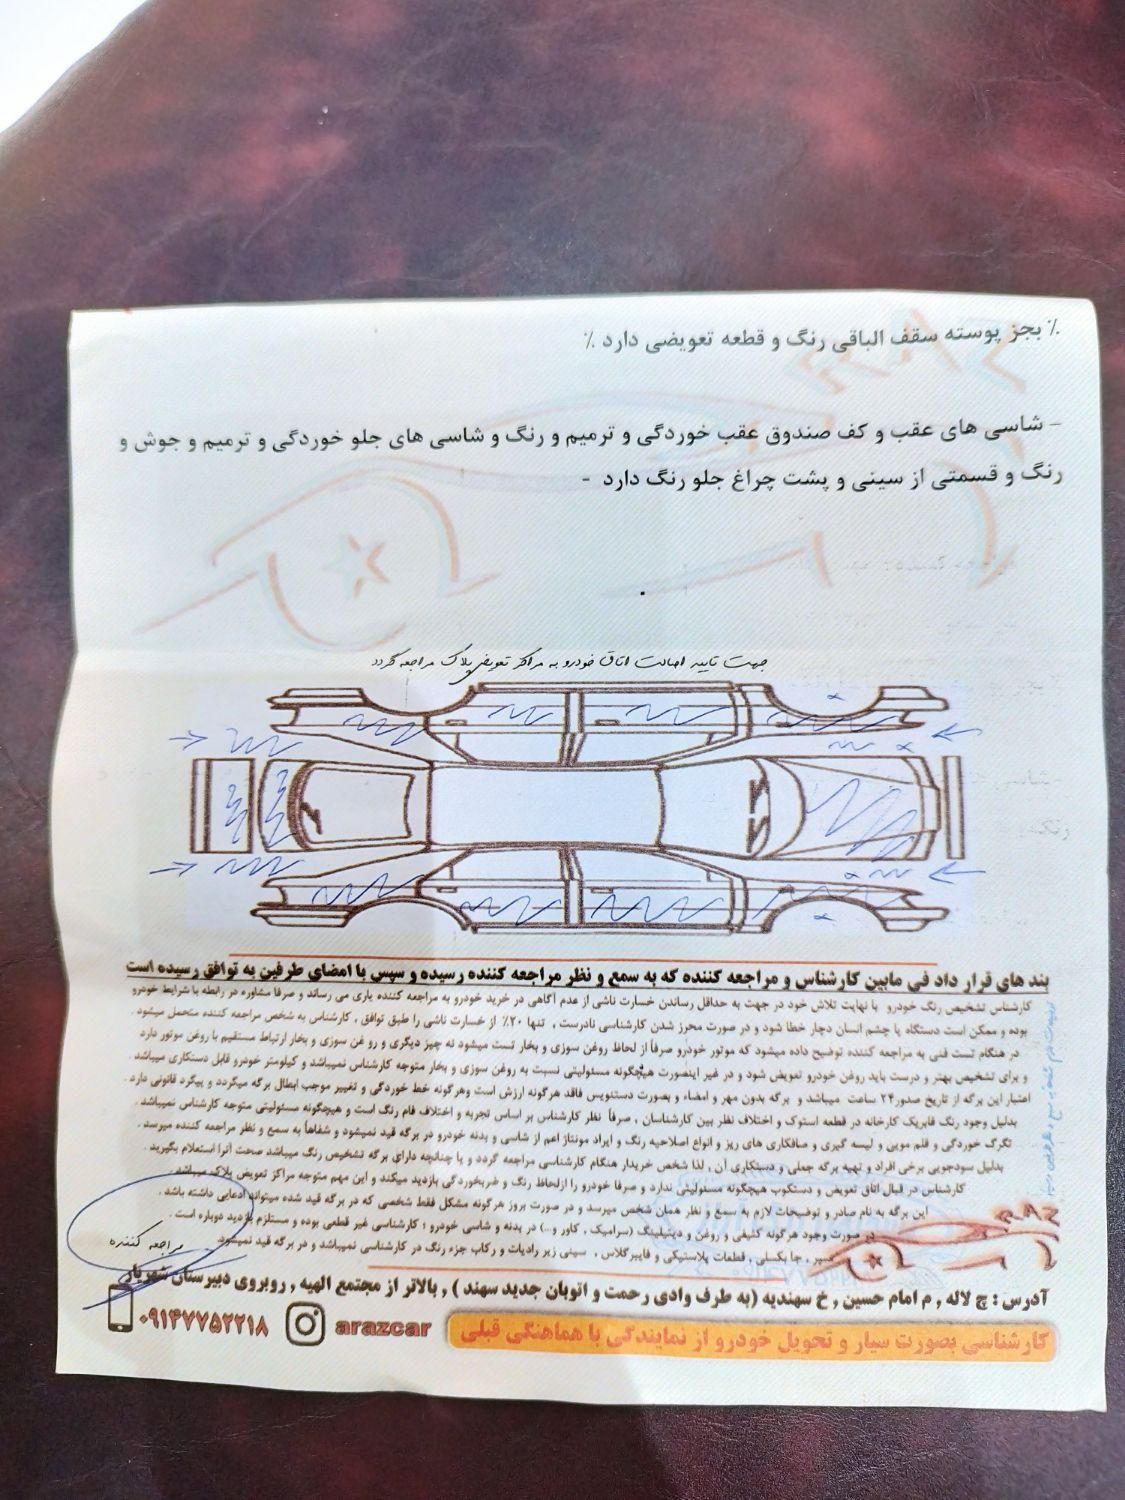 ٪ بجز پوسته سقف الباقی رنگ و قطعه تعویضی دارد ٪
- شاسی های عقب و کف صندوق عقب خوردگی و ترمیم و رنگ و شاسی های جلو خوردگی و ترمیم و جوش و
رنگ و قسمتی از سینی و پشت چراغ جلو رنگ دارد -
جهت تایید اصالت اتاق خودرو به مراکز تعویض پلاک مراجعه گردد
بند های قرار داد فی مابین کارشناس و مراجعه کننده که به سمع و نظر مراجعه کننده رسیده و سپس با امضای طرفین به توافق رسیده است
کارشناس تشخیص رنگ خودرو با نهایت تلاش خود در جهت به حداقل رساندن خسارت ناشی از عدم آگاهی در خرید خودرو به مراجعه کننده یاری می رساند و صرفا مشاوره در رابطه با شرایط خودرو
بوده و ممکن است دستگاه یا چشم انسان دچار خطا شود و در صورت محرز شدن کارشناسی نادرست , تنها ۲۰٪ از خسارت ناشی را طبق توافق , کارشناس به شخص مراجعه کننده متحمل میشود .
در هنگام تست فنی به مراجعه کننده توضیح داده میشود که موتور خودرو صرفاً از لحاظ روغن سوزی و بخار تست میشود نه چیز دیگری و رو غن سوزی و بخار ارتباط مستقیم با روغن موتور دارد
و برای تشخیص بهتر و درست باید روغن خودرو تعویض شود و در غیر اینصورت هیچگونه مسئولیتی نسبت به روغن سوزی و بخار متوجه کارشناس نمیباشد و کیلومتر خودرو قابل دستکاری میباشد .
اعتبار این برگه از تاریخ صدور۲۴ ساعت میباشد و برگه بدون مهر و امضاء و بصورت دستنویس فاقد هرگونه ارزش است وهرگونه خط خوردگی و تغییر موجب ابطال برگه میگردد و پیگرد قانونی دارد .
بدلیل وجود رنگ فابریک کارخانه در قطعه استوک و اختلاف نظر بین کارشناسان , صرفاً نظر کارشناس بر اساس تجربه و اختلاف فام رنگ است و هیچگونه مسئولیتی متوجه کارشناس نمیباشد .
تگرگ خوردگی و قلم مویی و لیسه گیری و صافکاری های ریز و انواع اصلاحیه رنگ و ایراد مونتاژ اعم از شاسی و بدنه خودرو در برگه قید نمیشود و شفاهاً به سمع و نظر مراجعه کننده میرسد .
بدلیل سودجویی برخی افراد و تهیه برگه جعلی و دستکاری آن , لذا شخص خریدار هنگام کارشناسی مراجعه گردد و یا چنانچه دارای برگه تشخیص رنگ میباشد صحت آنرا استعلام بگیرید .
کارشناس در قبال اتاق تعویض و دستکوب هیچگونه مسئولیتی ندارد و صرفا خودرو را ازلحاظ رنگ و ضربخوردگی بازدید میکند و این مهم متوجه مراکز تعویض پلاک میباشد .
این برگه به نام صادر و توضیحات لازم به سمع و نظر همان شخص میرسد و در صورت بروز هرگونه مشکل فقط شخصی که در برگه قید شده میتواند ادعایی داشته باشد .
در صورت وجود هرگونه کثیفی و روغن و دیتیلینگ (سرامیک , کاور و...) در بدنه و شاسی خودرو ؛ کارشناسی غیر قطعی بوده و مستلزم بازدید دوباره است .
سپر , جا بکسلی , قطعات پلاستیکی و فایبرگلاس , سینی زیر رادیات و رکاب جزء رنگ در کارشناسی نمیباشد و در برگه قید نمیشود
مراجعه کننده
آدرس : چ لاله , م امام حسین , خ سهندیه (به طرف وادی رحمت و اتوبان جدید سهند ) , بالاتر از مجتمع الهیه , روبروی دبیرستان شهریار
کارشناسی بصورت سیار و تحویل خودرو از نمایندگی با هماهنگی قبلی
arazcar
۰۹۱۴۷۷۵۲۲۱۸